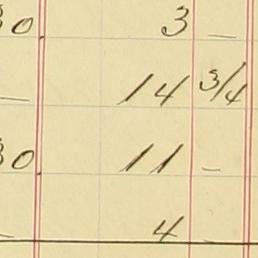 30 3 —
— 14 3/4
30 11 —
— 4 —